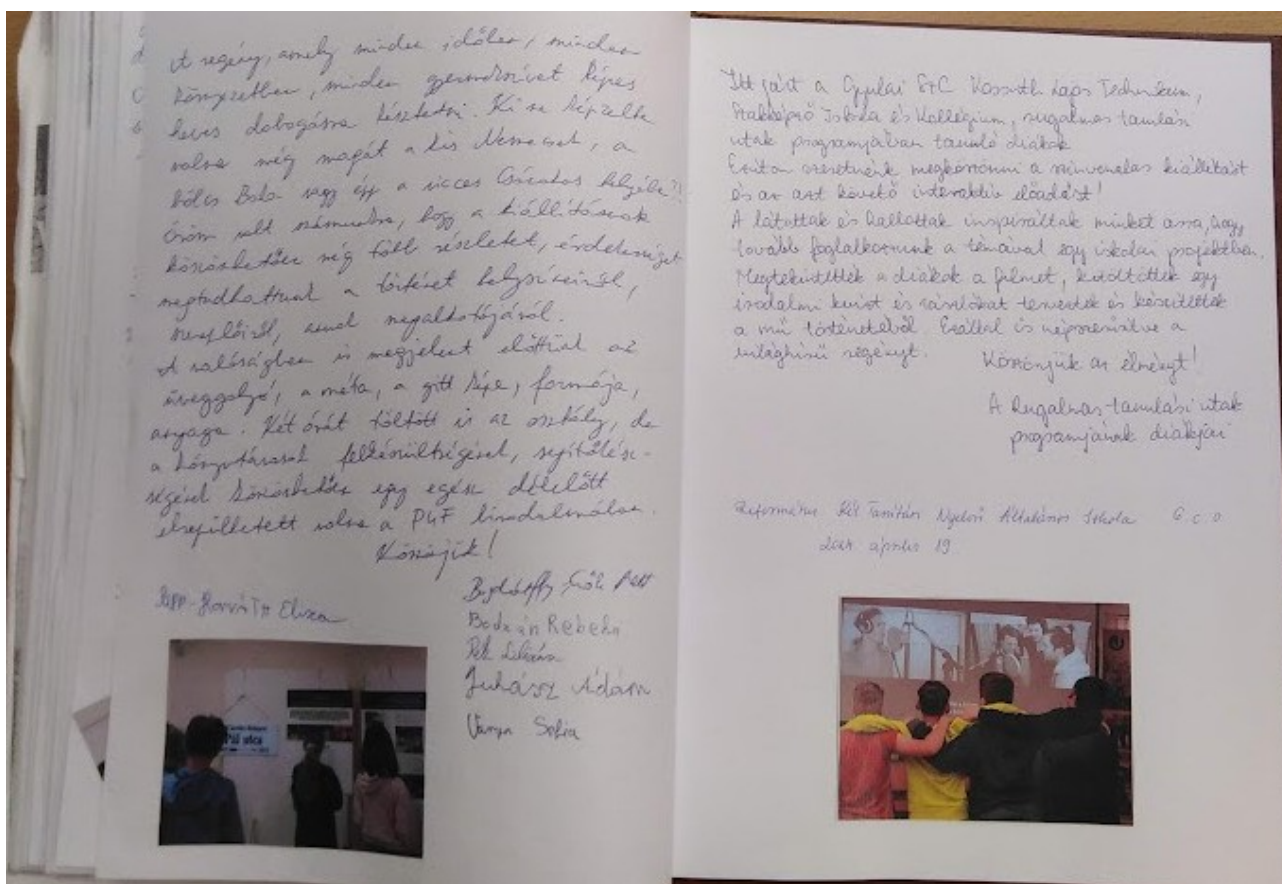 A regény, amely minden időben, minden
környezetben, minden gyermekszívet képes
heves dobogásra késztetni. Ki ne képzelte
volna még magát a kis Nemecsek, a
bölcs Boka vagy épp a vicces Csónakos helyébe?!
Öröm volt számunkra, hogy a kiállításnak
köszönhetően még több részletet, érdekességet
megtudhattunk a történet helyszíneiről,
szereplőiről, annak megalkotójáról.
A valóságban is megjelent előttünk az
üveggolyó, a méta, a gitt képe, formája,
anyaga. Két órát töltött is az osztály, de
a könyvtárosok felkészültségének, segítőkész-
ségének köszönhetően egy egész délelőtt
elrepülhetett volna a PUF birodalmában.
Köszönjük!
Papp-Horváth Eliza
Bodzán Rebeka
Liliána
Juhász Ádám
Varga Sofia
Pál utca
Itt járt a Gyulai SZC Kossuth Lajos Technikum,
Szakképző Iskola és Kollégium, rugalmas tanulási
utak programjában tanuló diákok
Ezúton szeretnénk megköszönni a színvonalas kiállítást
és az azt követő interaktív előadást!
A látottak és hallottak inspiráltak minket arra, hogy
tovább foglalkozzunk a témával egy iskolai projektben.
Megtekintették a diákok a filmet, kitöltöttek egy
irodalmi kvízt és zászlókat terveztek és készítettek
a mű történetéből. Ezáltal is népszerűsítve a
világhírű regényt.
Köszönjük az élményt!
A Rugalmas tanulási utak
programjának diákjai
Református Két Tanítási Nyelvű Általános Iskola 6. c. o
2024. április 19